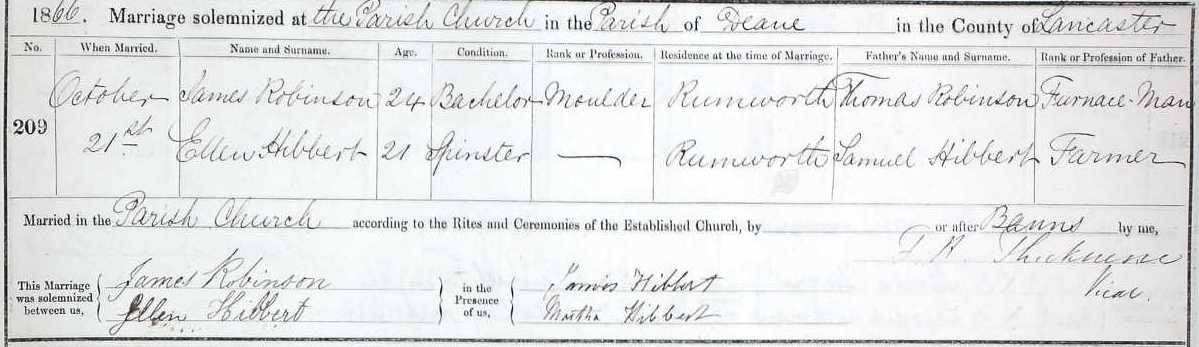 1866. Marriage solemnized at the Parish Church in the Parish of Deane in the County of Lancaster
No. When Married. Name and Surname. Age. Condition. Rank or Profession. Residence at the time of Marriage. Father's Name and Surname. Rank or Profession of Father.
October James Robinson 24 Bachelor Moulder Rumworth Thomas Robinson Furnace-Man
209
21st Ellen Hibbert 21 Spinster — Rumworth Samuel Hibbert Farmer
Married in the Parish Church according to the Rites and Ceremonies of the Established Church, by or after Banns by me,
Thicknesse
Vicar.
This Marriage was solemnized between us, James Robinson in the Presence of us, Hibbert
Ellen Hibbert Martha Hibbert